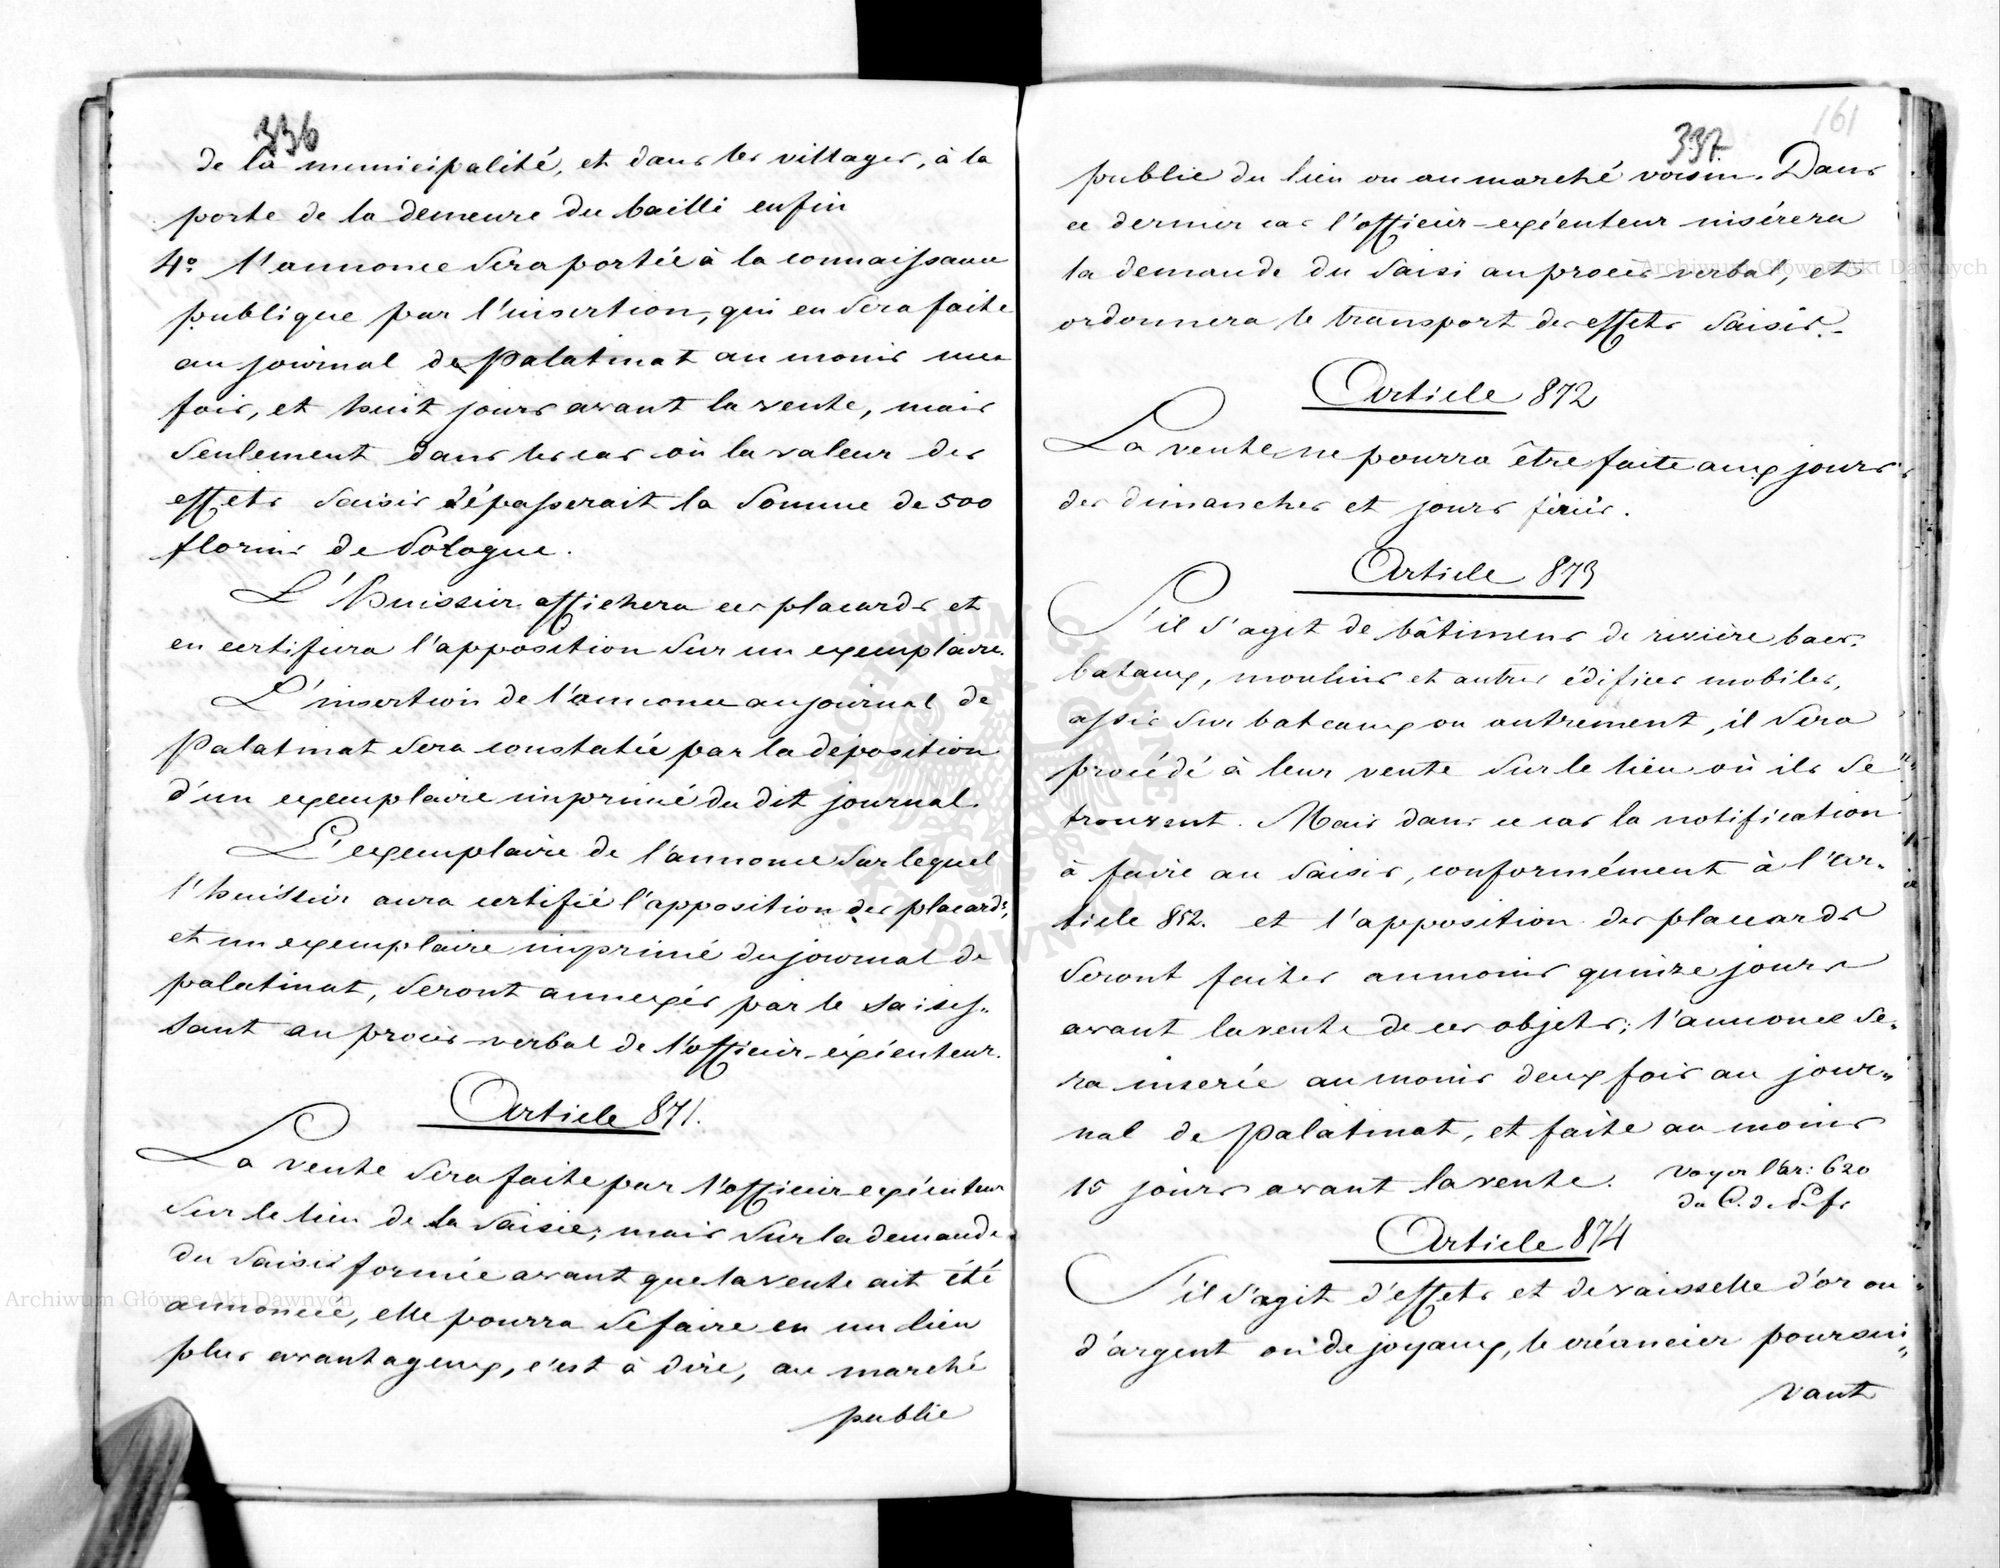 336
de la municipalité, et dans les villages, à la
porte de la demeure du bailli enfin
4º l'annonce sera portée à la connaissance
publique par l'insertion, qui en sera faite
au journal de Palatinat au moins une
fois, et huit jours avant la vente, mais
seulement dans les cas où la valeur des
effets saisis dépasserait la somme de 500
florins de Pologne.
L'huissier affichera ces placards et
en certifiera l'apposition sur un exemplaire.
L'insertion de l'annonce au journal de
Palatinat sera constatée par la déposition
d'un exemplaire imprimé du dit journal.
L'exemplaire de l'annonce sur lequel
l'huissier aura certifié l'apposition des placards,
et un exemplaire imprimé du journal de
palatinat, seront annexés par le saisis-
sant au procès-verbal de l'officier-exécuteur.
Article 871.
La vente sera faite par l'officier-exécuteur
sur le lieu de la saisie; mais sur la demande
du saisi formée avant que la vente ait été
annoncée, elle pourra se faire en un lieu
plus avantageux, c'est à dire, au marché
public
161
337.
public du lieu ou au marché voisin. Dans
ce dernier cas l'officier-exécuteur insérera
la demande du saisi au procès verbal, et
ordonnera le transport des effets saisis.
Article 872
La vente ne pourra être faite aux jours
des dimanches et jours fériés.
Article 873
S'il s'agit de bâtimens de rivière bacs,
bataux, moulins et autres édifices mobiles,
assis sur bateaux ou autrement, il sera
procédé à leur vente sur le lieu où ils se
trouvent. Mais dans ce cas la notification
à faire au saisi, conformément à l'ar-
ticle 852. et l'apposition des placards
seront faites au moins quinze jours
avant la vente de ces objets; l'annonce se-
ra inserée au moins deux fois au jour-
nal de Palatinat, et faite au moins
15 jours avant la vente. Voyez l'ar: 620
du C. de P. fr
Article 874
S'il s'agit d'effets et de vaisselle d'or ou
d'argent ou de joyaux, le créancier poursui-
vant
Archiwum Główne Akt Dawnych
Archiwum Główne Akt Dawnych
ARCHIWUM GŁÓWNE AKT DAWNYCH